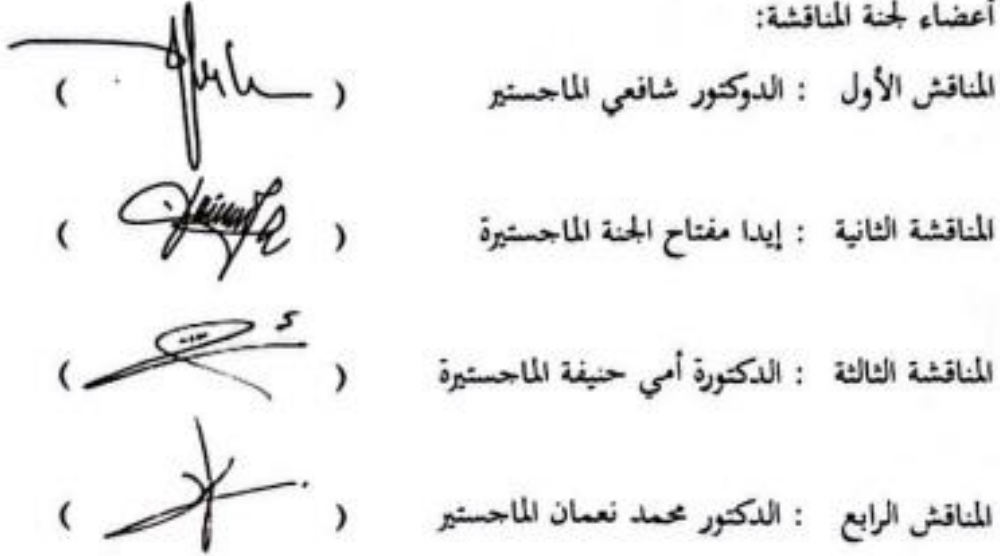 أعضاء لجنة المناقشة:
المناقش الأول : الدوكتور شافعي الماجستير ( )
المناقشة الثانية : إيدا مفتاح الجنة الماجستيرة ( )
المناقشة الثالثة : الدكتورة أمي حنيفة الماجستيرة ( )
المناقش الرابع : الدكتور محمد نعمان الماجستير ( )